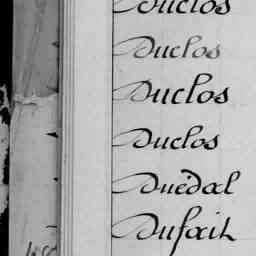 Duclos
Duclos
Duclos
Duclos
Duédal
Dufait